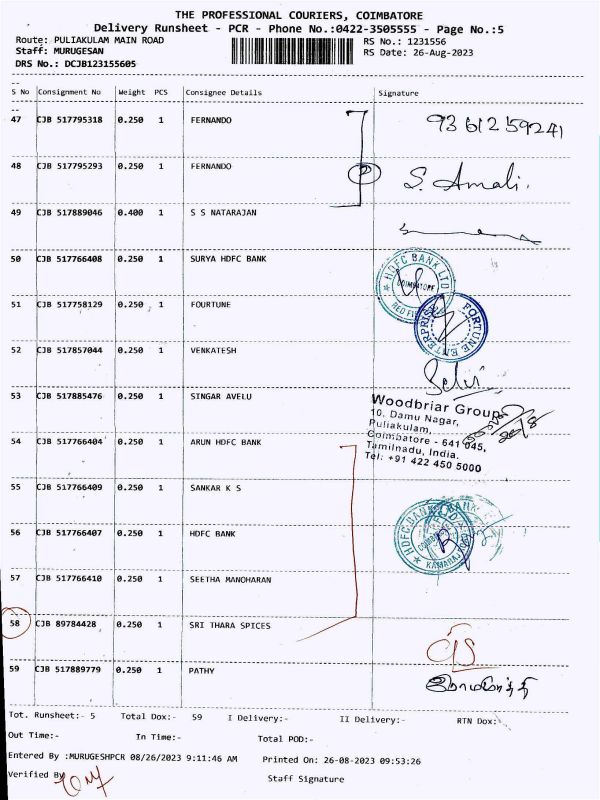 THE PROFESSIONAL COURIERS, COIMBATORE
Delivery Runsheet - PCR - Phone No.:0422-3505555 - Page No.:5
Route: PULIAKULAM MAIN ROAD RS No.: 1231556
Staff: MURUGESAN RS Date: 26-Aug-2023
DRS No.: DCJB123155605
S No Consignment No Weight PCS Consignee Details Signature
47 CJB 517795318 0.250 1 FERNANDO 9361259241
48 CJB 517795293 0.250 1 FERNANDO 2 S. Amali.
49 CJB 517889046 0.400 1 S S NATARAJAN
50 CJB 517766408 0.250 1 SURYA HDFC BANK
HDFC BANK LTD
COIMBATORE
51 CJB 517758129 0.250 1 FOURTUNE
FORTUNE ENTERPRISE
52 CJB 517857044 0.250 1 VENKATESH
Selvi
53 CJB 517885476 0.250 1 SINGAR AVELU
Woodbriar Group
10, Damu Nagar,
Puliakulam,
Coimbatore - 641 045,
Tamilnadu, India.
Tel: +91 422 450 5000
54 CJB 517766404 0.250 1 ARUN HDFC BANK
55 CJB 517766409 0.250 1 SANKAR K S
56 CJB 517766407 0.250 1 HDFC BANK
HDFC BANK
57 CJB 517766410 0.250 1 SEETHA MANOHARAN
58 CJB 89784428 0.250 1 SRI THARA SPICES
59 CJB 517889779 0.250 1 PATHY
Tot. Runsheet:- 5 Total Dox:- 59 I Delivery:- II Delivery:- RTN Dox:-
Out Time:- In Time:- Total POD:-
Entered By :MURUGESHPCR 08/26/2023 9:11:46 AM Printed On: 26-08-2023 09:53:26
Verified By Staff Signature